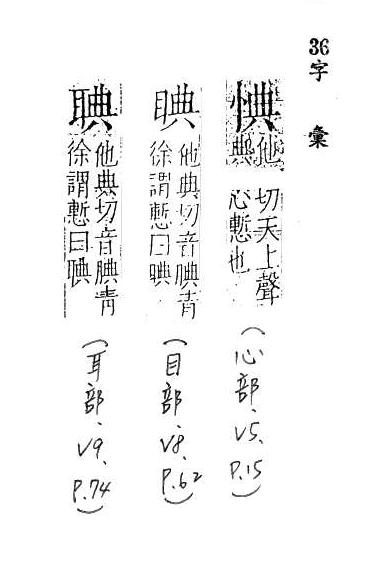 36字 彙
㥏
他典
切天上聲
心慙也
(心部、V5、P.15)
睓
他典切音腆青
徐謂慙曰睓
(目部、V8、P.62)
他典切音腆青
徐謂慙曰
(耳部、V9、P.74)